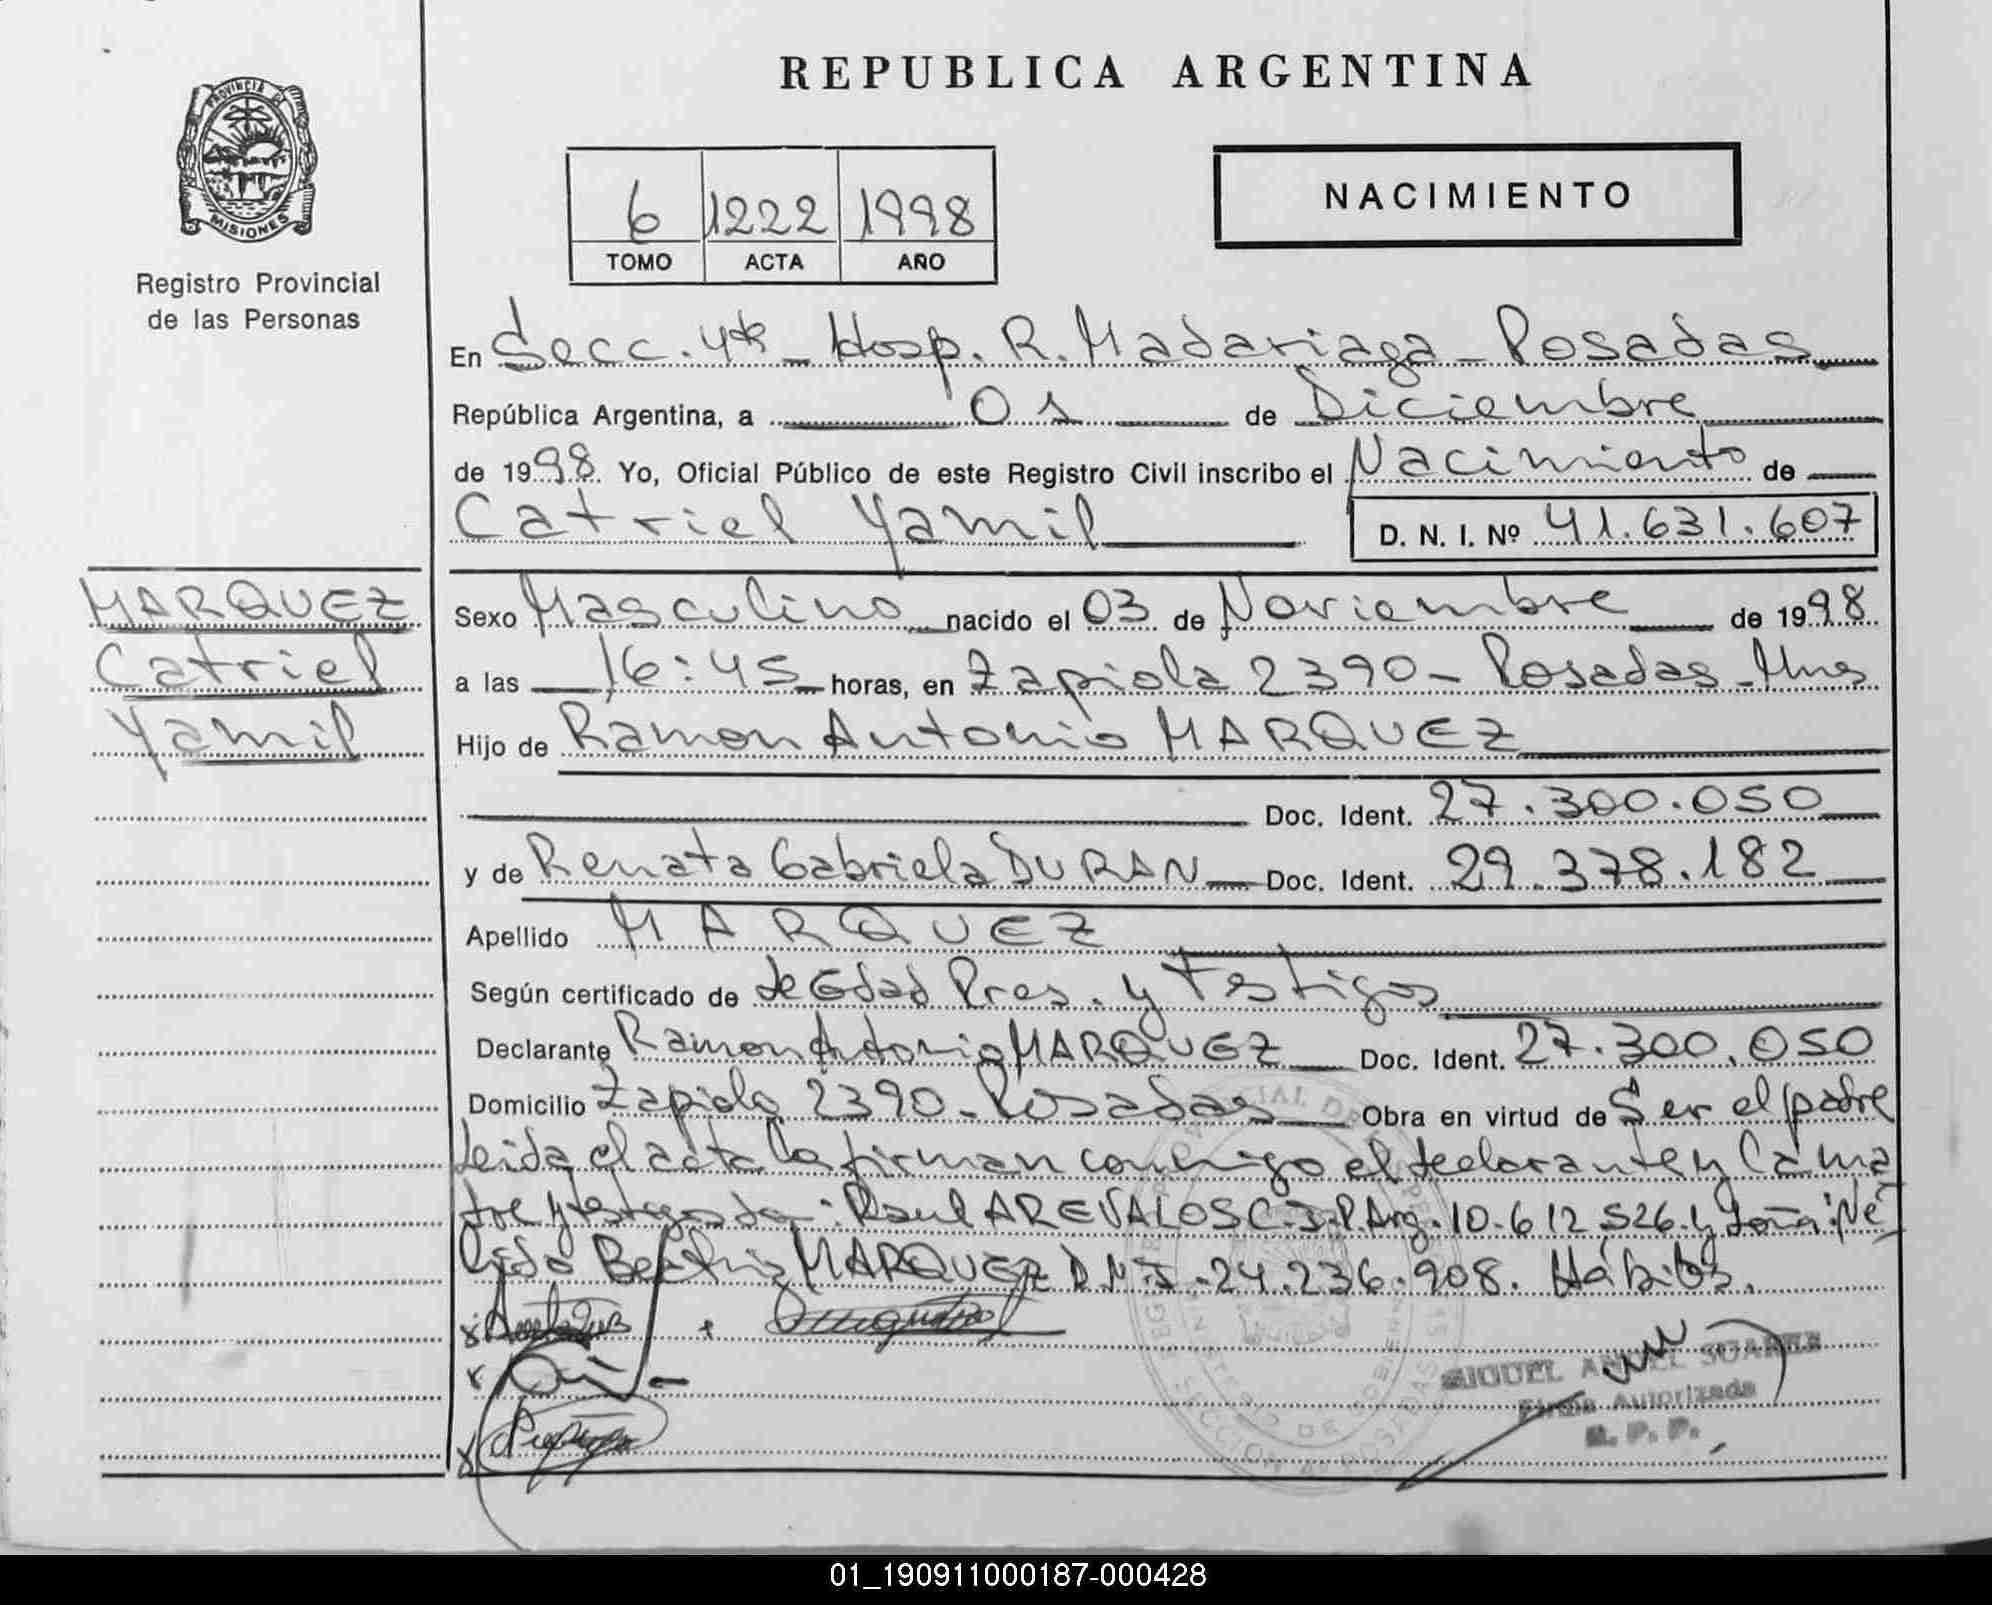 REPUBLICA ARGENTINA
PROVINCIA DE
MISIONES
Registro Provincial
de las Personas
6 1222 1998
TOMO ACTA AÑO
NACIMIENTO
En Secc. 4ta Hosp. R. Madariaga - Posadas
República Argentina, a 01 de Diciembre
de 1998 Yo, Oficial Público de este Registro Civil inscribo el Nacimiento de
Catriel Yamil D. N. I. Nº 41.631.607
MARQUEZ
Catriel
Yamil
Sexo Masculino nacido el 03 de Noviembre de 1998
a las 16:45 horas, en Zapiola 2390 - Posadas - Mnes
Hijo de Ramon Antonio MARQUEZ
Doc. Ident. 27.300.050
y de Renata Gabriela DURAN Doc. Ident. 29.378.182
Apellido MARQUEZ
Según certificado de de Edad Pres. y Testigos
Declarante Ramon Antonio MARQUEZ Doc. Ident. 27.300.050
Domicilio Zapiola 2390 - Posadas Obra en virtud de Ser el padre
Leida el acta la firman conmigo el declarante y la ma
dre y testigos : Raul AREVALOS C.I.P.Arg. 10.612.526 y doña: Né
lida Beatriz MARQUEZ D.N.I. 24.236.908. Hábiles.
MIGUEL ANGEL SUAREZ
Firma Autorizada
R. P. P.
01_190911000187-000428